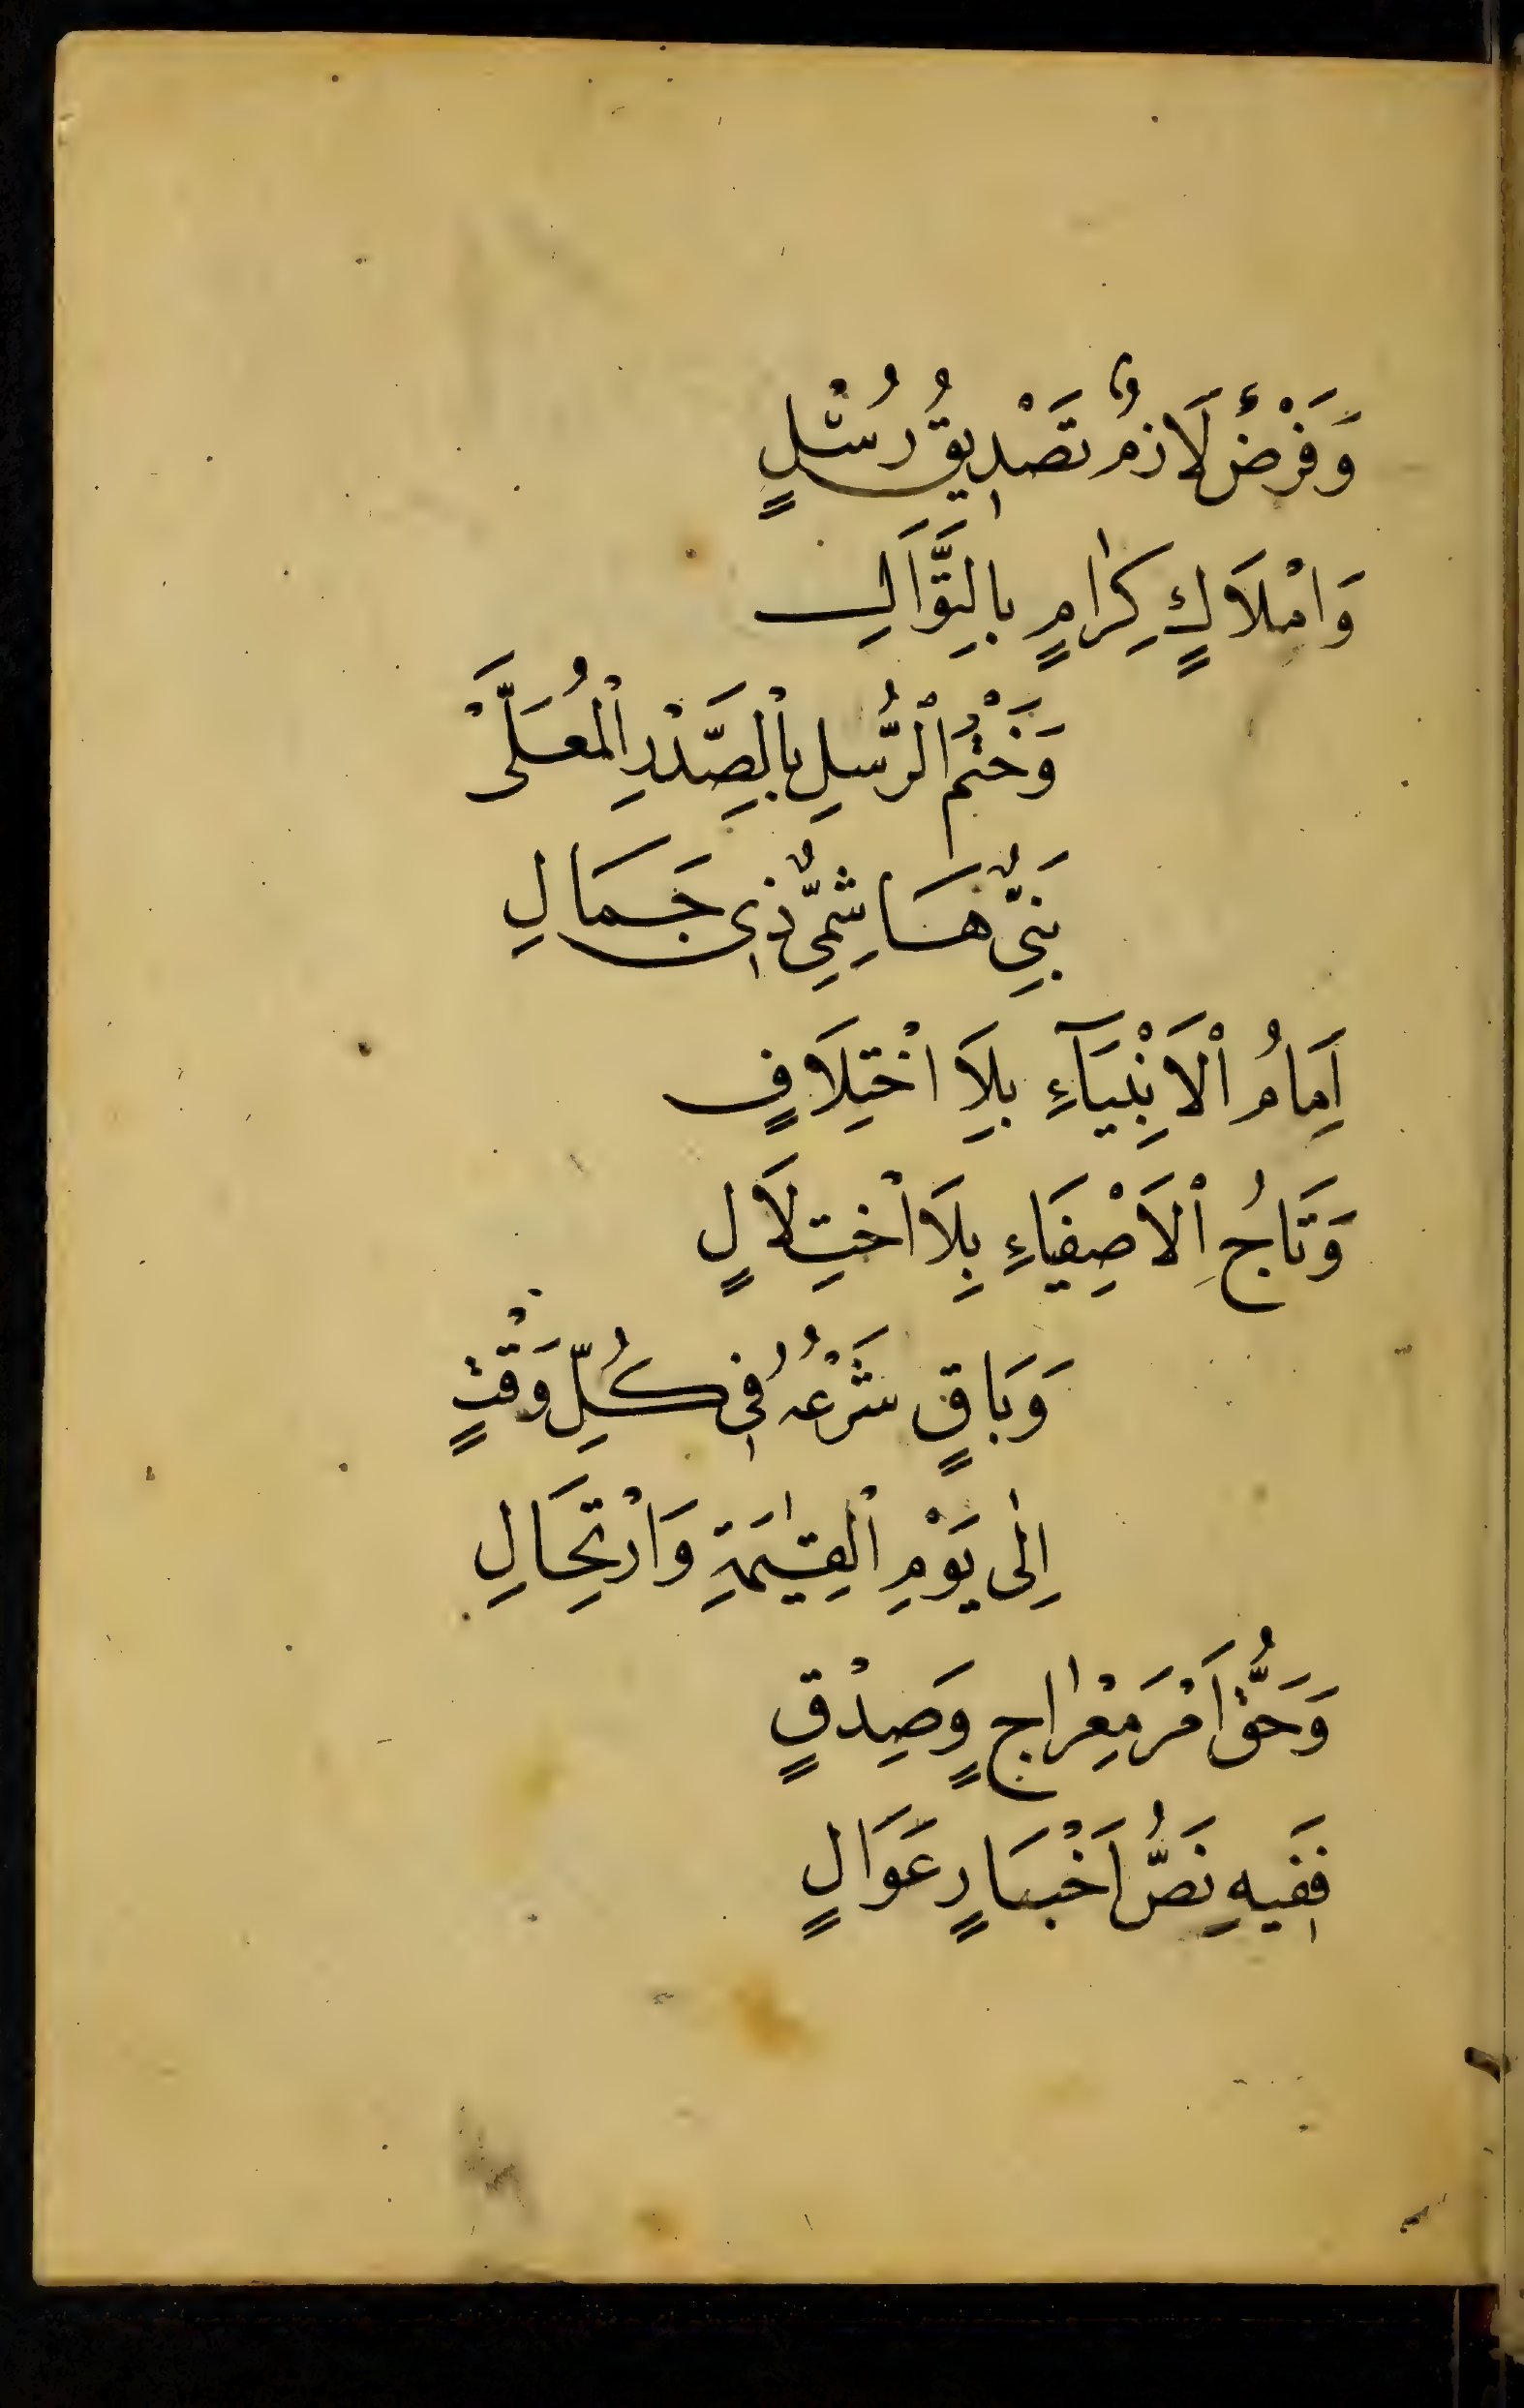 وَفَرْضٌ لَازِمٌ تَصْدِيقُ رُسْلٍ
وَامْلَاكٍ كِرَامٍ بِالتَّوَالِ
وَخَتْمُ الْرُّسِلِ بِالْصَّدْرِ الْمُعَلَّى
نَبِيٌّ هَاشِمِيٌّ ذِى جَمَالِ
اِمَامُ الْاَنْبِيَآءِ بِلَا اخْتِلَافٍ
وَتَاجُ الْاَصْفِيَاءِ بِلَا اخْتِلَالٍ
وَبَاقٍ شَرْعُهُ فِى كُلِّ وَقْتٍ
اِلٰى يَوْمِ الْقِيٰمَةِ وَارْتِحَالِ
وَحَقُّ اَمْرَ مِعْرَاجٍ وَصِدْقٍ
فَفِيهِ نَصُّ اَخْبَارٍ عَوَالٍ